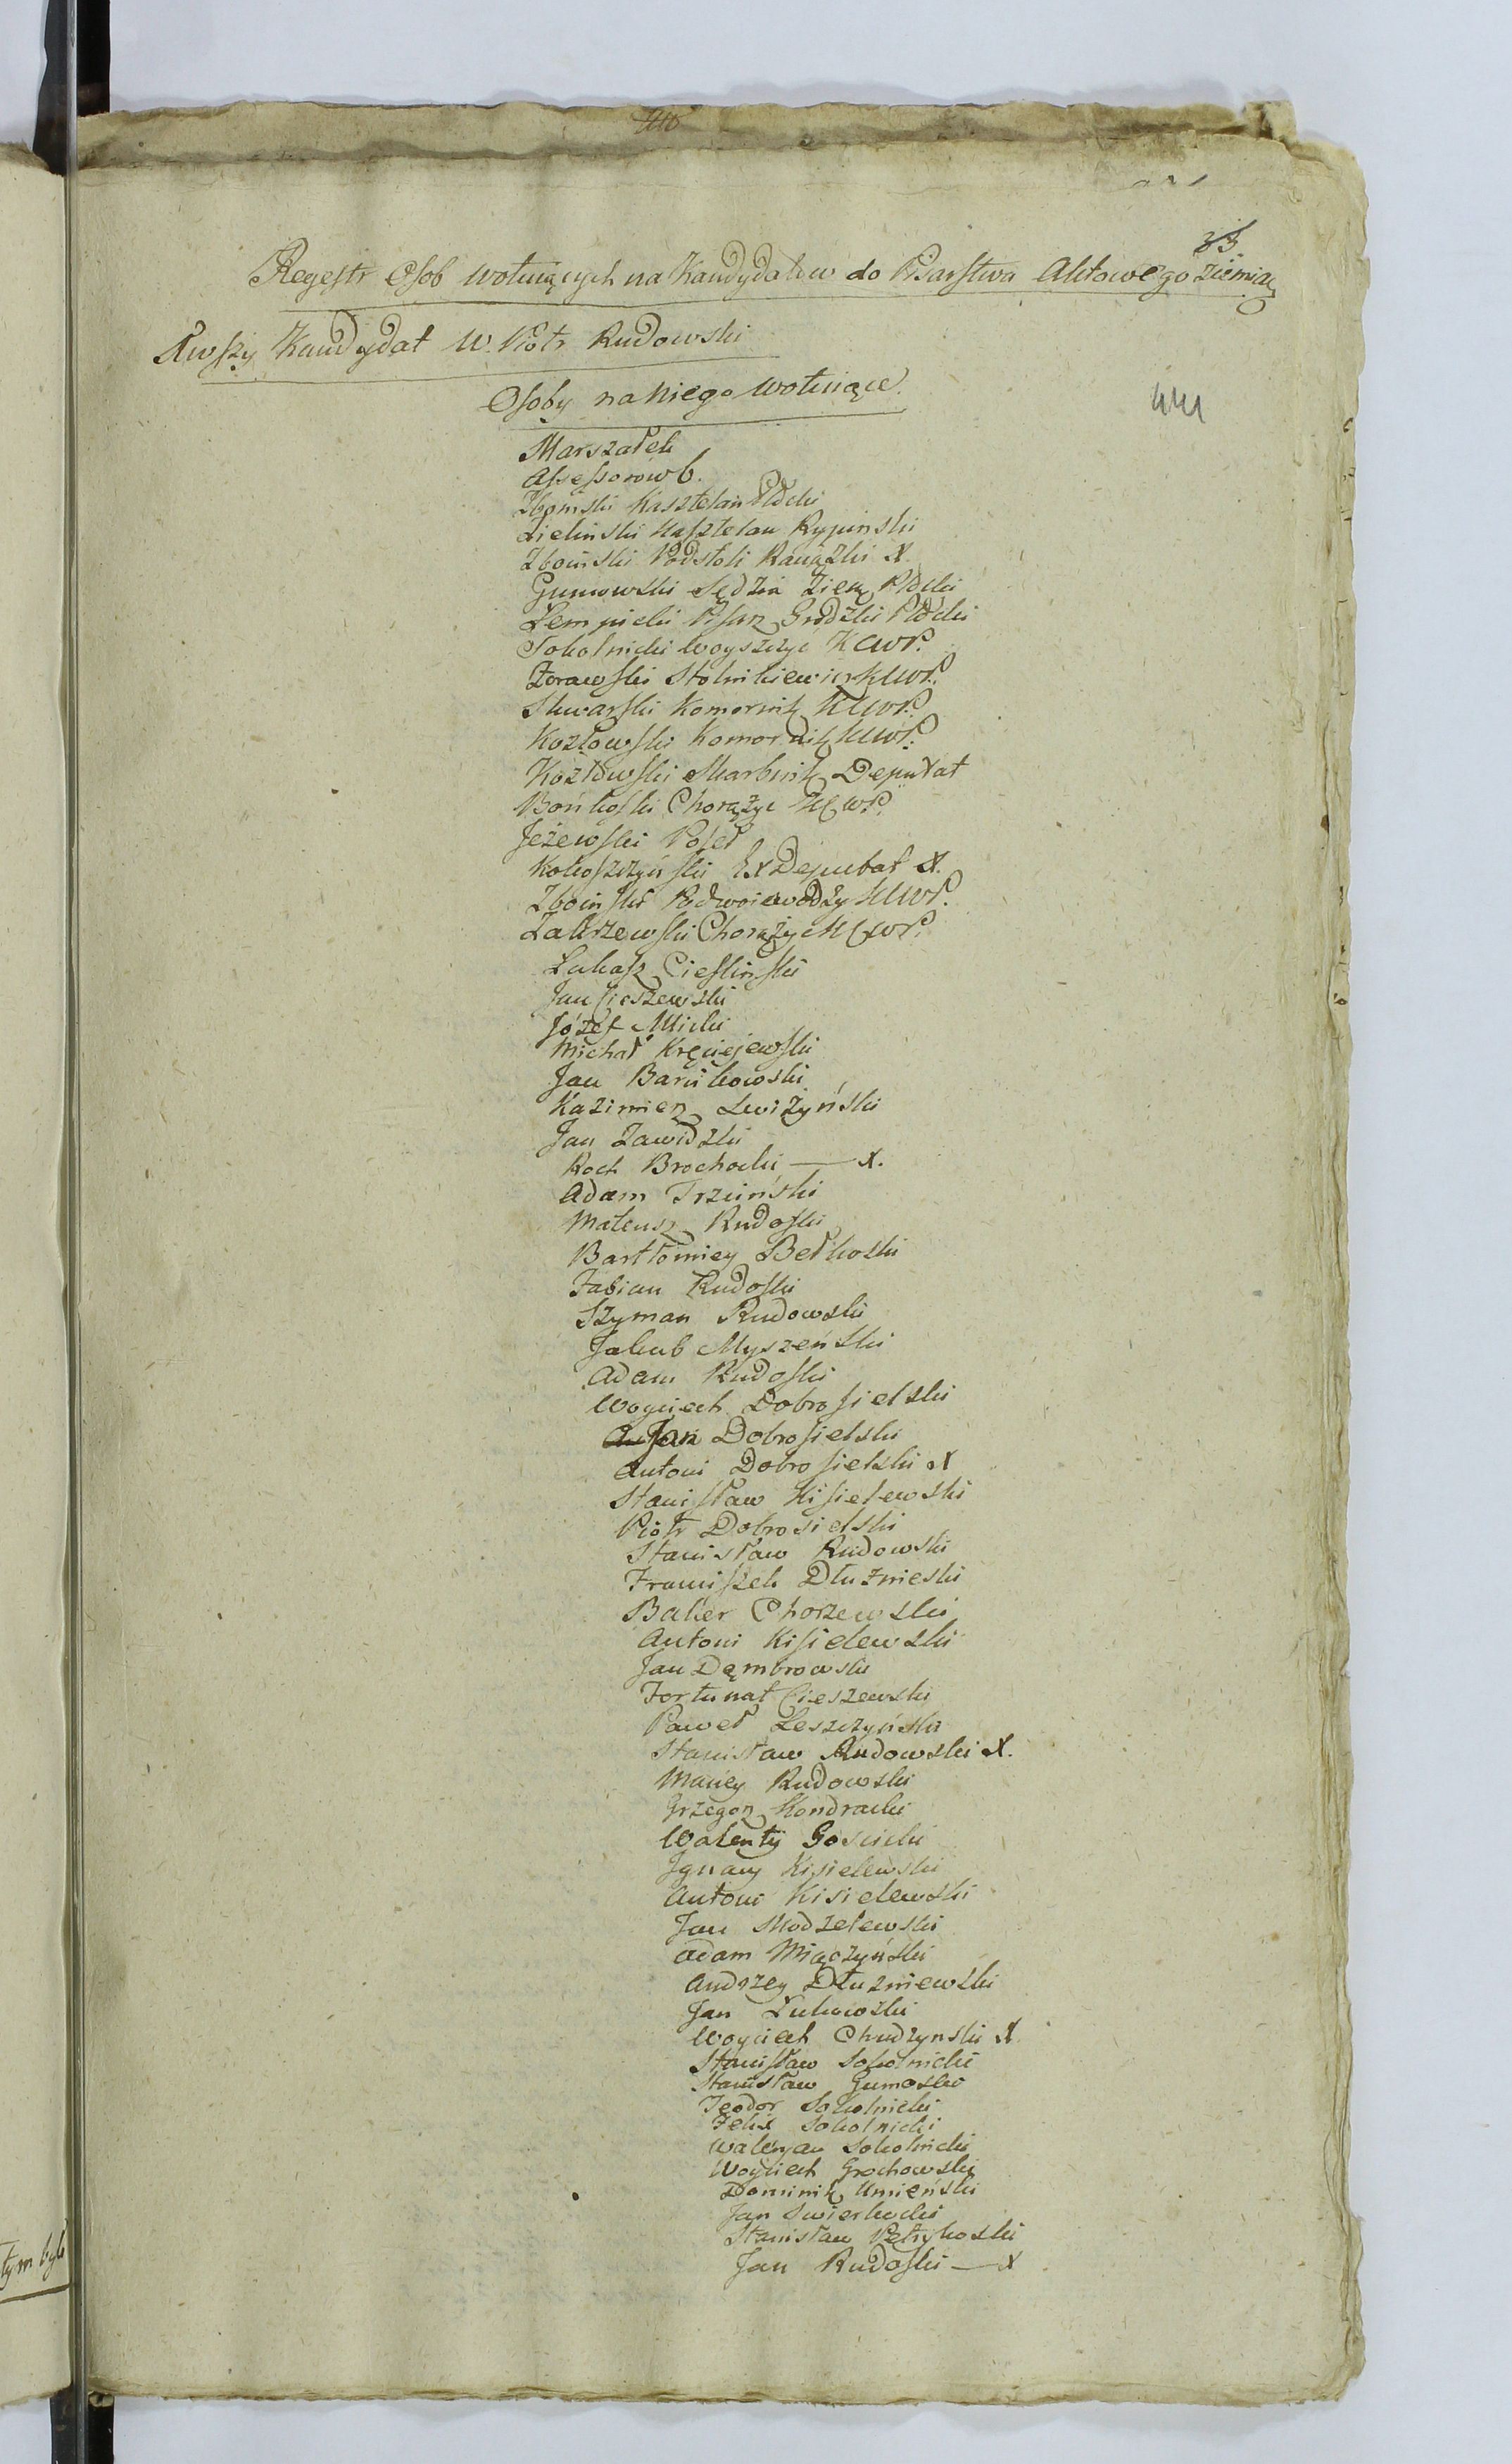 33
Regestr Osob wotuiących na Kandydatow do Pisarstwa Aktowego Ziemiąń
Pwszy Kandydat W. Piotr Rudowski
Osoby na niego wotuiące.
441
Marszałek
Assessorow 6.
Zboinski Kasztelan Płdcki
Zielinski Kasztelan Rypinski
Zboinski Podstoli Raciązki X
Gumowski Sędzia Ziem Płdcki
Lempicki Pisarz Grodzki Płdcki
Sokolnicki Woyszczyc KCWP.
Zorawski Stolnikiewicz KCWP.
Skwarski Komornik KCWP.
Kozłowski Komornik KCWP.
Kozłowski Skarbnik Deputat
Bońkoski Chorążyc KCWP.
Jeżewski Poseł
Kokoszczyński Ex Deputat X.
Zboinski Podwoiewodzy KCWP.
Zakrzewski Chorążyc KCWP.
Lukasz Cieslinski
Jan Cieszewski
Józef Milicki
Michał Kręciejewski
Jan Bańkowski
Kazimierz Zwiżyński
Jan Zawidzki
Roch Brochocki — X.
Adam Trzciński
Mateusz Rudoski
Bartłomiey Bełkoski
Fabian Rudoski
Szyman Rudowski
Jakub Myszeński
Adam Rudoski
Woyciech Dobrosielski
Jan Dobrosielski
Antoni Dobrosielski X
Stanisław Kisielewski
Piotr Dobrosielski
Stanisław Rudowski
Franciszek Dłużnieski
Balcer Chorzewski
Antoni Kisielewski
Jan Dęmbrowski
Fortunat Cieszewski
Paweł Leszczyński
Stanisław Rudowski X.
Maciey Rudowski
Grzegorz Kondracki
Walenty Gościcki
Jgnacy Kisielewski
Antoni Kisielewski
Jan Modzelewski
Adam Miączyński
Andrzey Dłużniewski
Jan Łukowski
Woyciech Chudzynski X
Stanisław Sokolnicki
Stanisław Gumoski
Teodor Sokolnicki
Felix Sokolnicki
Waleryan Sokolnicki
Woyciech Grochowski
Dominik Umieński
Jan Swierkocki
Stanisław Petrykoski
Jan Rudoski — X
tym byli